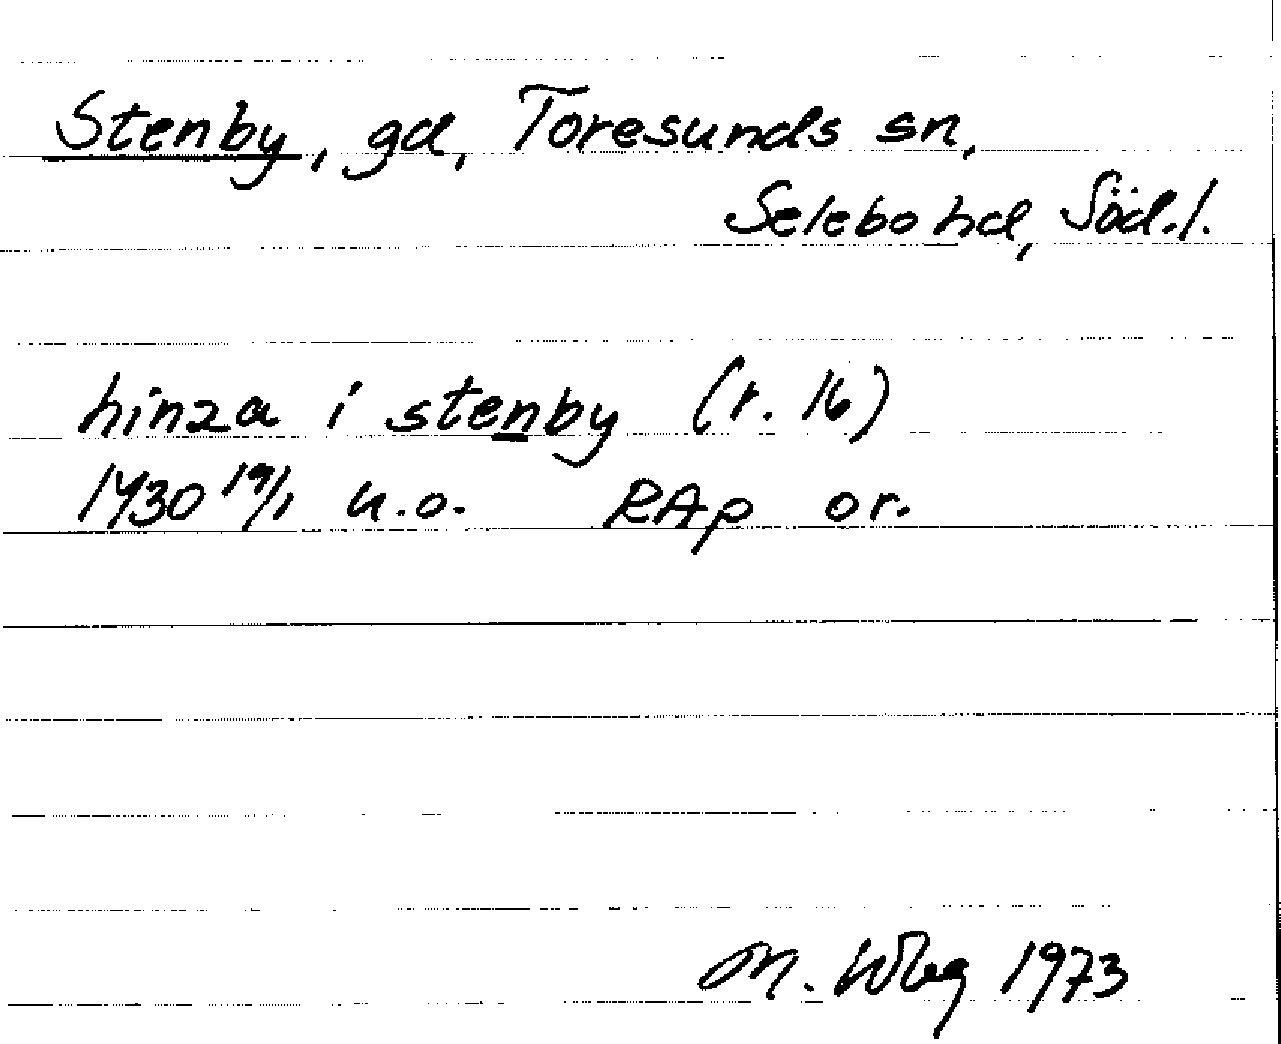 Stenby, gd, Toresunds sn,
Selebo hd, Söd.l.
hinza i stenby (r. 16)
1430 19/1 u.o. RAp or.
M. Wbg 1973